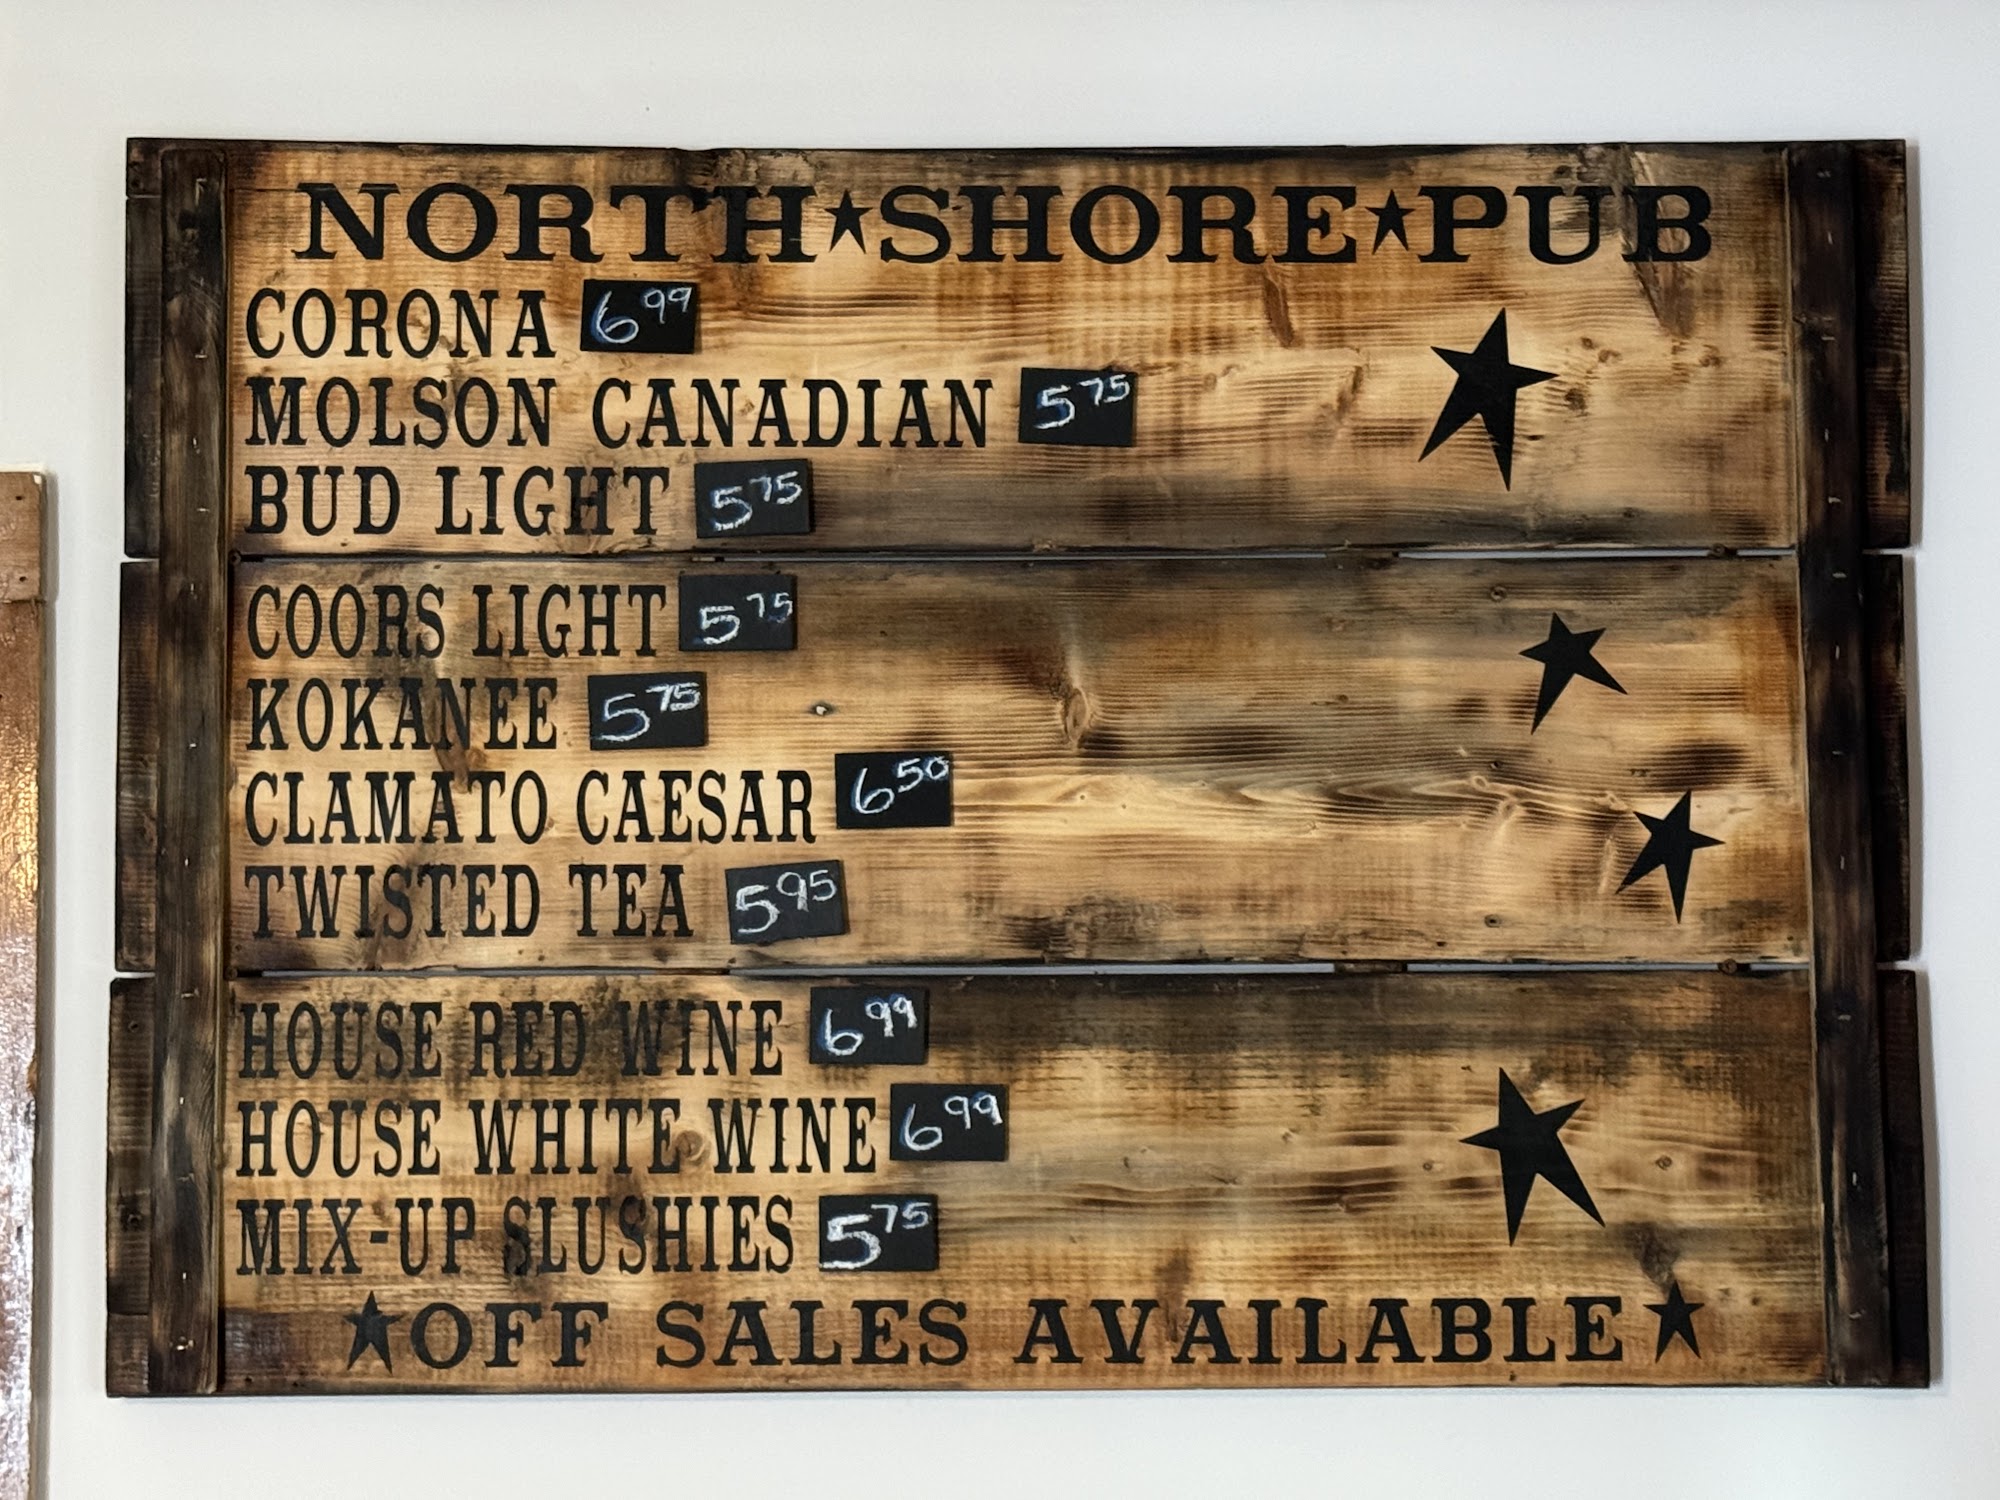 NORTH★SHORE★PUB
CORONA 6 99
MOLSON CANADIAN 5 75
BUD LIGHT 5 75
COORS LIGHT 5 75
KOKANEE 5 75
CLAMATO CAESAR 6 50
TWISTED TEA 5 95
HOUSE RED WINE 6 99
HOUSE WHITE WINE 6 99
MIX-UP SLUSHIES 5 75
★OFF SALES AVAILABLE★